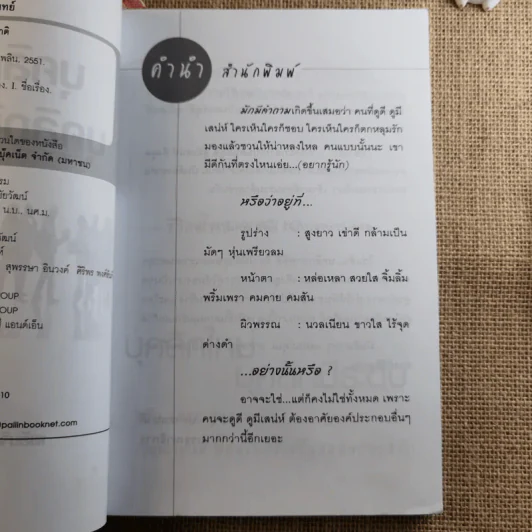 ทย์
ติ
พลิน. 2551.
ง. I. ชื่อเรื่อง.
วนใดของหนังสือ
บุ๊คเน็ต จำกัด (มหาชน)
รม
ชัยวัฒน์
น.บ., นศ.ม.
วัฒน์
ติ์
สุพรรษา อินวงค์ ศิริพร
OUP
OUP
ปี แอนด์เอ็น
10
pailinbooknet.com
คำนำ สำนักพิมพ์
มักมีคำถามเกิดขึ้นเสมอว่า คนที่ดูดี ดูมี
เสน่ห์ ใครเห็นใครก็ชอบ ใครเห็นใครก็ตกหลุมรัก
มองแล้วชวนให้น่าหลงใหล คนแบบนั้นน่ะ เขา
มีดีกันที่ตรงไหนเอ่ย...(อยากรู้นัก)
หรือว่าอยู่ที่...
รูปร่าง : สูงยาว เข่าดี กล้ามเป็น
มัดๆ หุ่นเพรียวลม
หน้าตา : หล่อเหลา สวยใส จิ้มลิ้ม
พริ้มเพรา คมคาย คมสัน
ผิวพรรณ : นวลเนียน ขาวใส ไร้จุด
ด่างดำ
...อย่างนั้นหรือ ?
อาจจะใช่...แต่ก็คงไม่ใช่ทั้งหมด เพราะ
คนจะดูดี ดูมีเสน่ห์ ต้องอาศัยองค์ประกอบอื่นๆ
มากกว่านี้อีกเยอะ